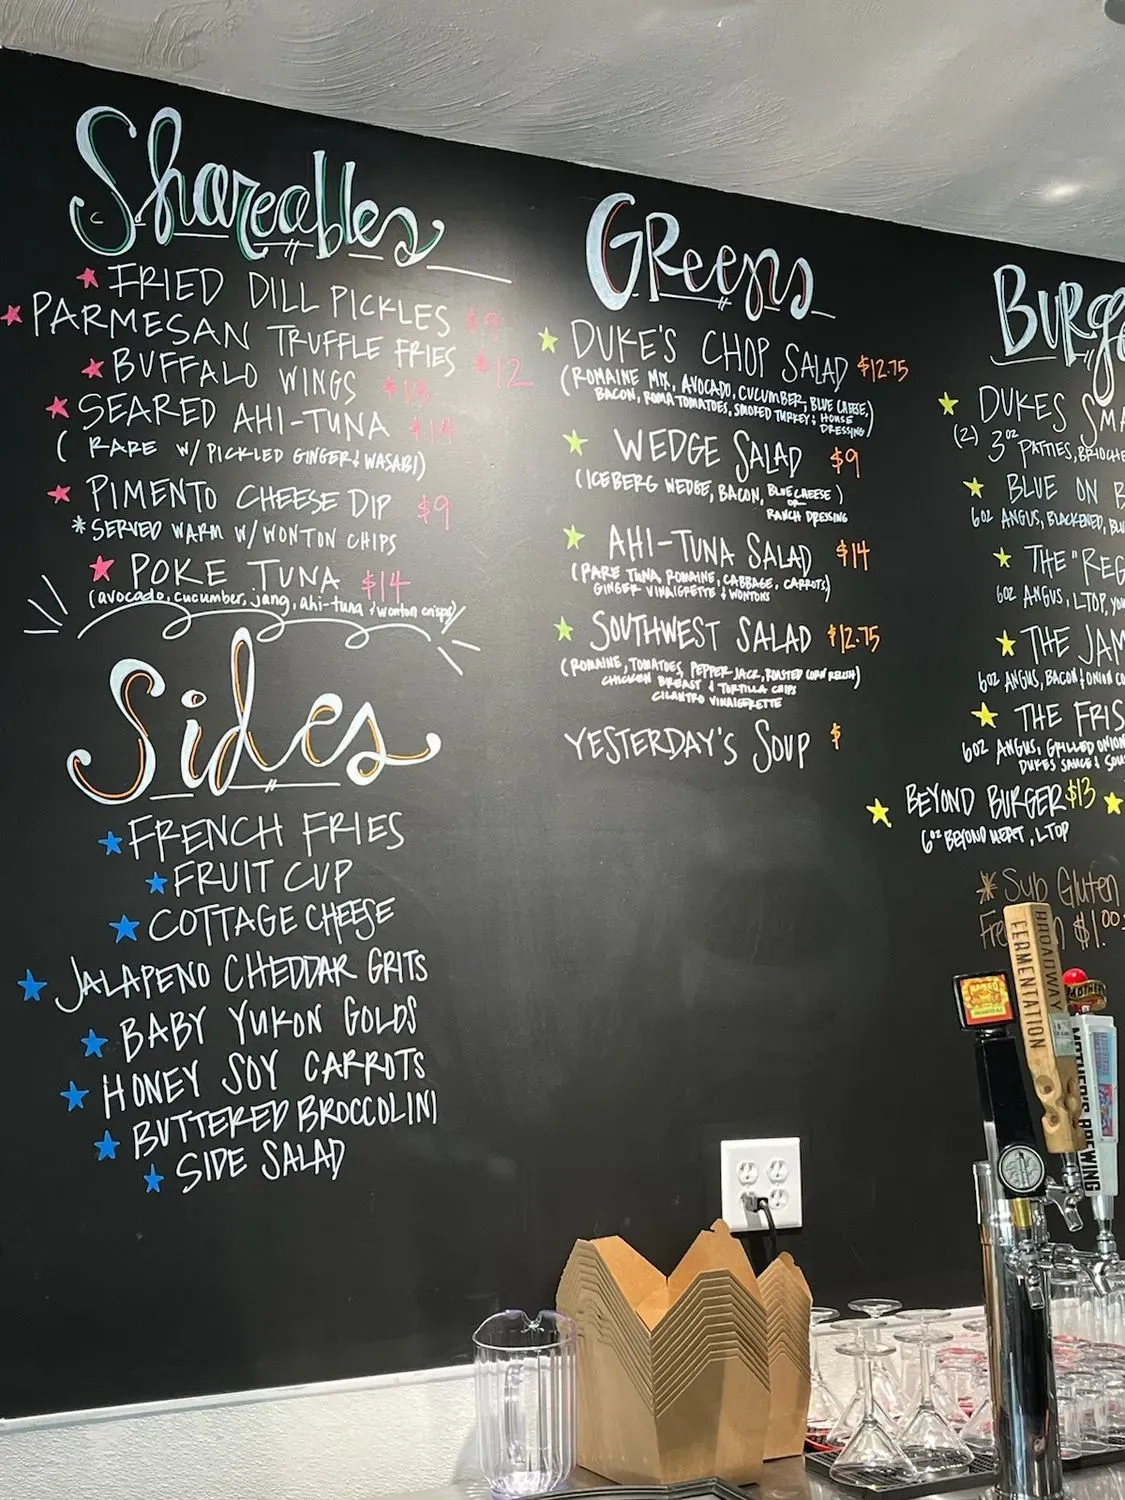 Shareables
FRIED DILL PICKLES $9
PARMESAN TRUFFLE FRIES $12
BUFFALO WINGS $13
SEARED AHI-TUNA $14
( RARE W/ PICKLED GINGER & WASABI)
PIMENTO CHEESE DIP $9
*SERVED WARM W/ WONTON CHIPS
POKE TUNA $14
(avocado, cucumber, jang, ahi-tuna & wonton crisps)
Sides
FRENCH FRIES
FRUIT CUP
COTTAGE CHEESE
JALAPENO CHEDDAR GRITS
BABY YUKON GOLDS
HONEY SOY CARROTS
BUTTERED BROCCOLINI
SIDE SALAD
GReens
DUKE'S CHOP SALAD $12.75
(ROMAINE MIX, AVOCADO, CUCUMBER, BLUE CHEESE,
BACON, ROMA TOMATOES, SMOKED TURKEY & HOUSE
DRESSING)
WEDGE SALAD $9
(ICEBERG WEDGE, BACON, BLUE CHEESE )
OR
RANCH DRESSING
AHI-TUNA SALAD $14
(RARE TUNA, ROMAINE, CABBAGE, CARROTS)
GINGER VINAIGRETTE & WONTONS
SOUTHWEST SALAD $12.75
(ROMAINE, TOMATOES, PEPPER JACK, ROASTED CORN RELISH)
CHICKEN BREAST & TORTILLA CHIPS
CILANTRO VINAIGRETTE
YESTERDAY'S SOUP $
BURge
DUKES SMA
(2) 3oz PATTIES, BRIOCHE
BLUE ON B
6oz ANGUS, BLACKENED, BLU
THE "REG
6oz ANGUS, LTOP, YOU
THE JAM
6oz ANGUS, BACON & ONION CO
THE FRIS
6oz ANGUS, GRILLED ONION
DUKES SAUCE & SOU
BEYOND BURGER $13
6oz BEYOND MEAT, LTOP
* Sub Gluten
Fre $1.00
BROADWAY
FERMENTATION
MOTHER'S
MOTHER'S BREWING